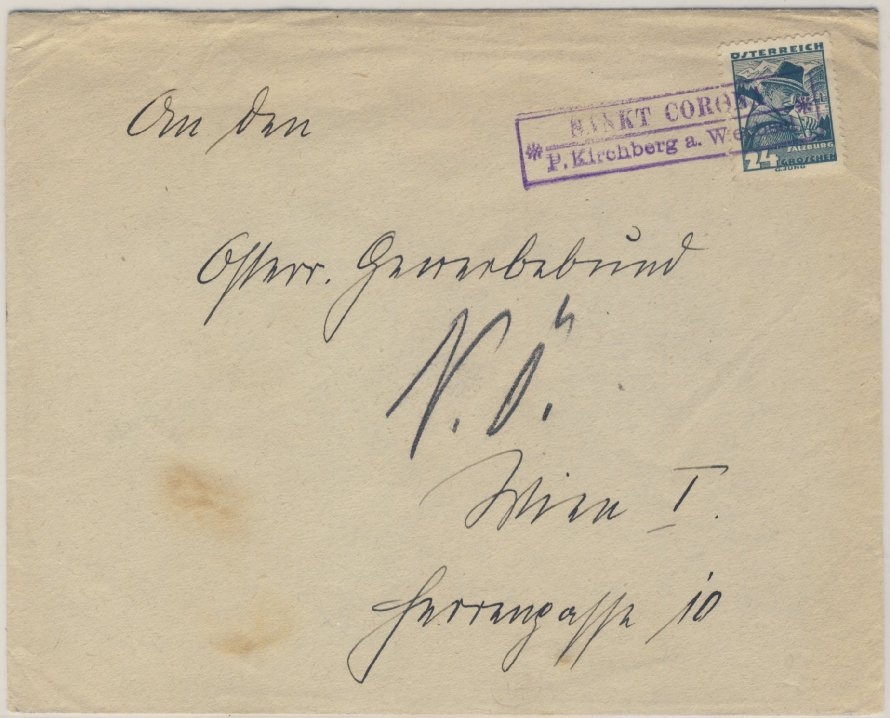 An den
ÖSTERREICH
* SANKT CORONA *
P. Kirchberg a. Wechsel
SALZBURG
24 GROSCHEN
G. JUNG
Österr. Gewerbebund
N.Ö.
Wien I.
Herrengasse 10